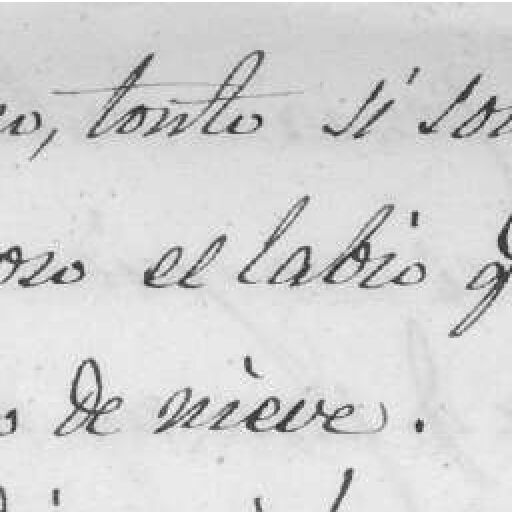 co, tonto si son
oso el labio q
o de nieve.